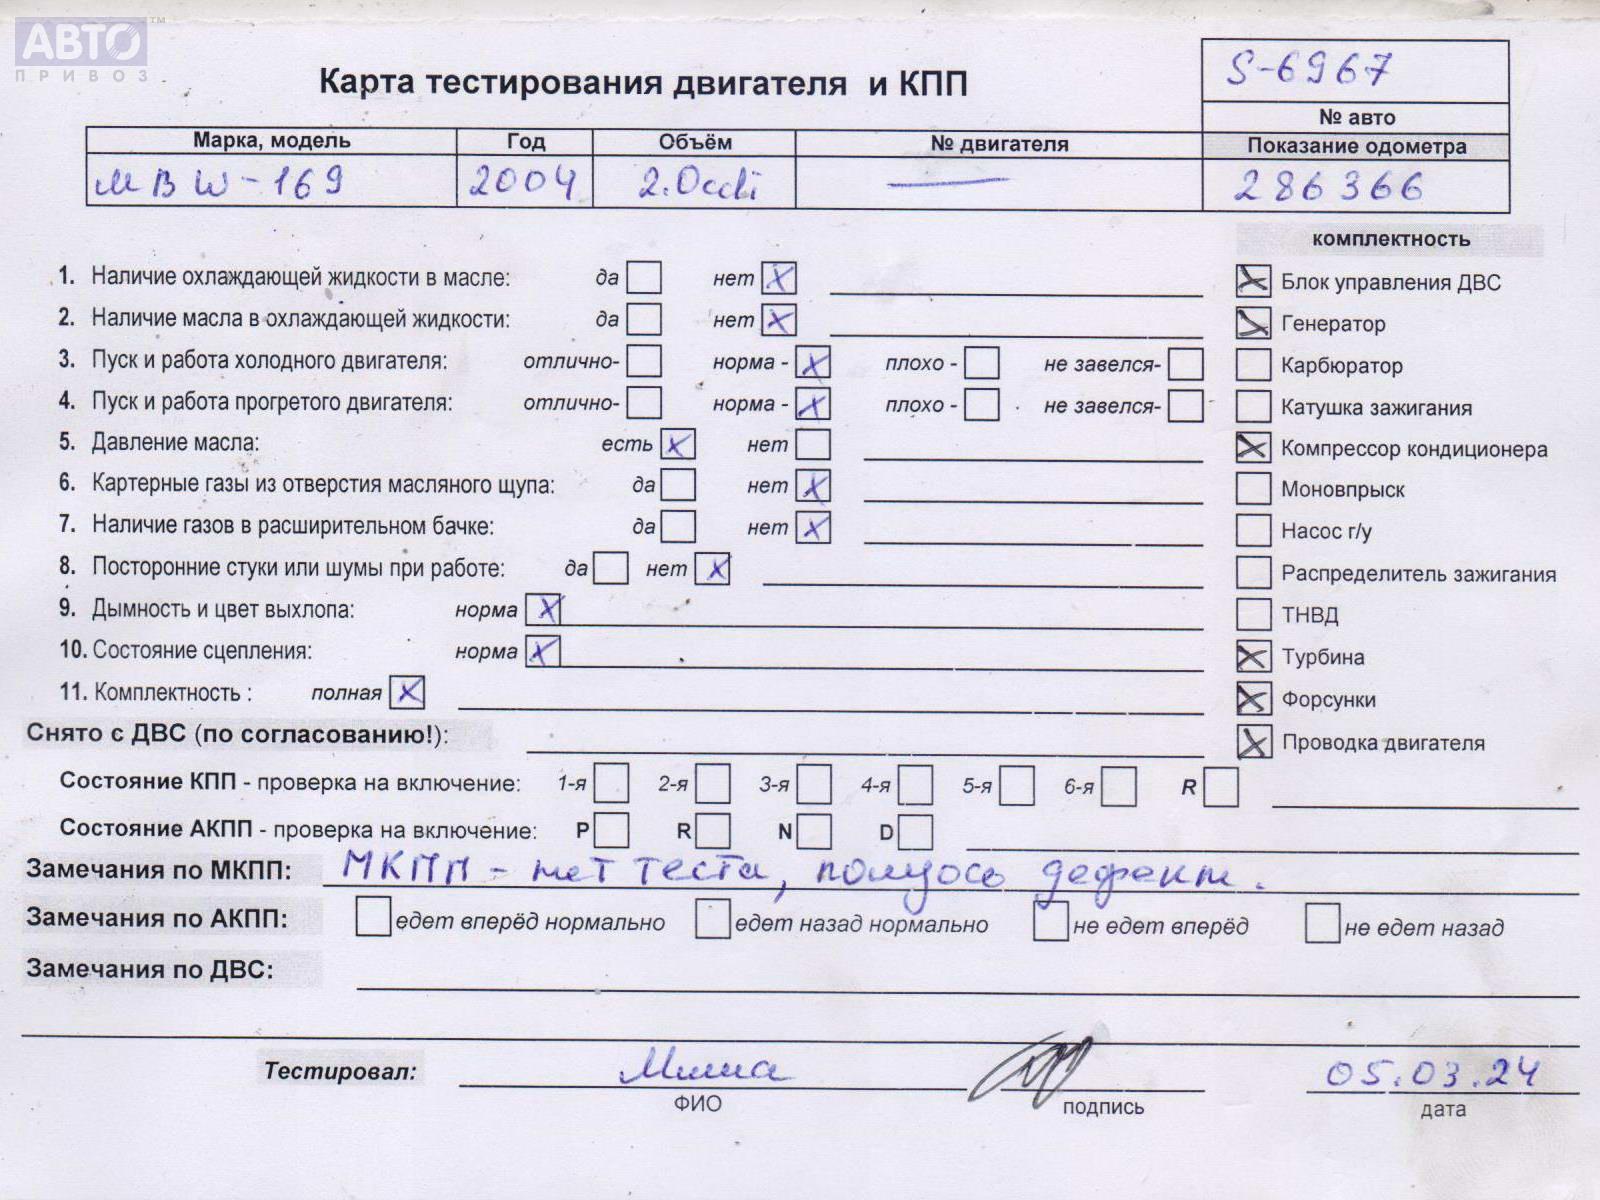 АВТО™
ПРИВОЗ
S-6967
Карта тестирования двигателя и КПП
№ авто
Марка, модель Год Объём № двигателя Показание одометра
MB W-169 2004 2.0cdi — 286366
комплектность
1. Наличие охлаждающей жидкости в масле: да нет X
X Блок управления ДВС
2. Наличие масла в охлаждающей жидкости: да нет X
X Генератор
3. Пуск и работа холодного двигателя: отлично- норма - X плохо - не завелся-
Карбюратор
4. Пуск и работа прогретого двигателя: отлично- норма - X плохо - не завелся-
Катушка зажигания
5. Давление масла: есть X нет
X Компрессор кондиционера
6. Картерные газы из отверстия масляного щупа: да нет X
Моновпрыск
7. Наличие газов в расширительном бачке: да нет X
Насос г/у
8. Посторонние стуки или шумы при работе: да нет X
Распределитель зажигания
9. Дымность и цвет выхлопа: норма X
ТНВД
10. Состояние сцепления: норма X
X Турбина
11. Комплектность : полная X
X Форсунки
Снято с ДВС (по согласованию!):
X Проводка двигателя
Состояние КПП - проверка на включение: 1-я 2-я 3-я 4-я 5-я 6-я R
Состояние АКПП - проверка на включение: P R N D
Замечания по МКПП: МКПП - нет теста, полуось дефект.
Замечания по АКПП: едет вперёд нормально едет назад нормально не едет вперёд не едет назад
Замечания по ДВС:
Тестировал: 05.03.24
ФИО подпись дата